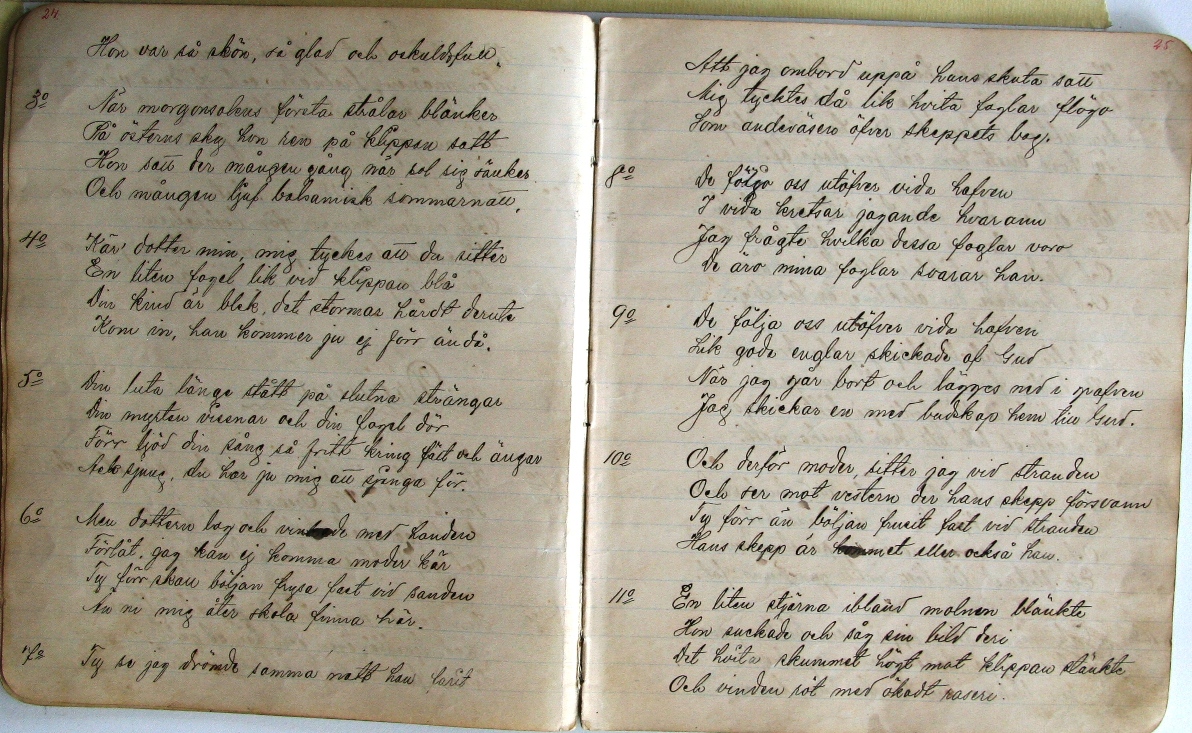 24
Hon var så skön, så glad och oskuldsfull,
3o
När morgonsolens första strålar blänker
På österns sky hon ren på klippan satt
Hon satt der mången gång när sol sig sänker
Och mången ljuf balsamisk sommarnatt,
4o
Kär' dotter min, mig tyckes att du sitter
En liten fogel lik vid klippan blå
Din kind är blek, det stormar hårdt derute
Kom in, han kommer ju ej förr ändå.
5o
Din luta länge stått på slutna strängar
Din myrten vissnar och din fogel dör
Förr ljöd din sång så fritt kring fält och ängar
Ack sjung, du har ju mig att sjunga för.
6o
Men dottern bog och vinkade med handen
Förlåt, jag kan ej komma moder kär
Ty förr skall böljan frysa fast vid sanden
Än ni mig åter skola finna här.
7o
Ty se jag drömde samma natt han farit
25
Att jag ombord uppå hans skuta satt
Mig tycktes då lik hvita foglar flögo
Som andeväsen öfver skeppets bog.
8o
De följo oss utöfver vida hafven
I vida kretsar jagande hvarann
Jag frågte hvilka dessa foglar voro
De äro mina foglar svarar han.
9o
De följa oss utöfver vida hafven
Lik goda englar skickade af Gud
När jag går bort och lägges ned i grafven
Jag skickar en med budskap hem till Gud.
10o
Och derför moder sitter jag vid stranden
Och ser mot vestern der hans skepp försvann
Ty förr än böljan frusit fast vid stranden
Hans skepp är kommet eller också han.
11o
En liten stjärna ibland molnen blänkte
Hon suckade och såg sin bild deri
Det hvita skummet högt mot klippan stänkte
Och vinden röt med ökadt raseri.